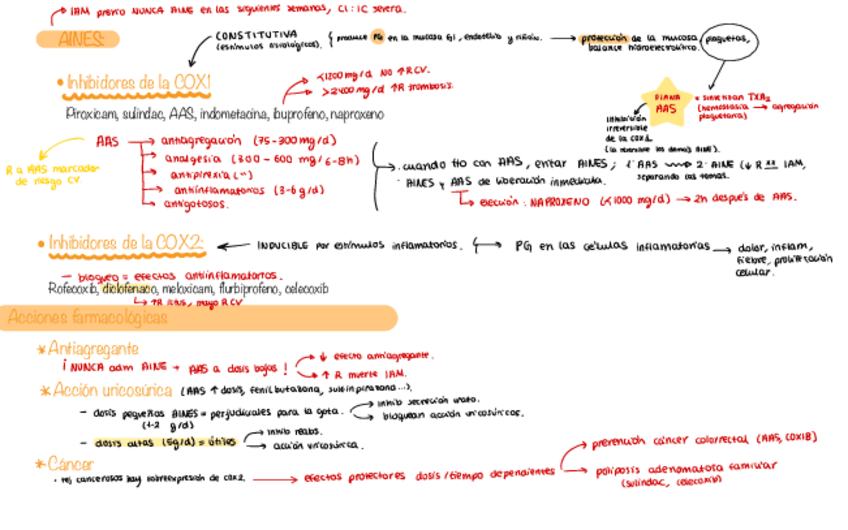 IAM previo NUNCA AINE en las siguientes semanas, CI: IC severa.
AINES:
CONSTITUTIVA
(estímulos fisiológicos).
produce PG en la mucosa GI, endotelio y riñón.
protección de la mucosa,
balance hidroelectrolítico.
plaquetas,
• Inhibidores de la COX1
<1200 mg/d NO ↑RCV.
>2400 mg/d ↑R trombosis.
Piroxicam, sulindac, AAS, indometacina, ibuprofeno, naproxeno
DIANA
AAS
= sintetizan TXA2
(hemostasia → agregación
plaquetaria)
inhibición
irreversible
de la cox1
AAS → antiagregación (75-300mg/d)
analgesia (300 - 600 mg/6-8h)
antipirexia (")
antiinflamatorios (3-6 g/d)
antigotosos.
R a AAS marcador
de riesgo CV.
. cuando tto con AAS, evitar AINES; 1º AAS 2º AINE (↓ R IAM,
separando las tomas.
· AINES y AAS de liberación inmediata.
elección: NAPROXENO (<1000 mg/d) → 2h después de AAS.
• Inhibidores de la COX2:
INDUCIBLE por estímulos inflamatorios.
PG en las células inflamatorias → dolor, inflam,
fiebre, proliferación
celular.
- bloqueo = efectos antiinflamatorios.
Rofecoxib, diclofenaco, meloxicam, flurbiprofeno, celecoxib
↑R ictus, mayo RCV
Acciones farmacológicas
* Antiagregante
¡ NUNCA adm AINE + AAS a dosis bajas !
↓ efecto antiagregante.
↑ R muerte IAM.
* Acción uricosúrica (AAS ↑ dosis, fenilbutazona, sulfinpirazona...).
- dosis pequeñas AINES = perjudiciales para la gota.
(1-2 g/d)
inhib secreción urato.
bloquean acción uricosúricos.
- dosis altas (5g/d) = útiles
inhib reabs.
acción uricosúrica.
* Cáncer
· cej cancerosos hay sobreexpresión de cox2. → efectos protectores dosis/tiempo dependientes
prevención cáncer colorrectal (AAS, COXIB)
poliposis adenomatosa familiar
(sulindac, celecoxib)